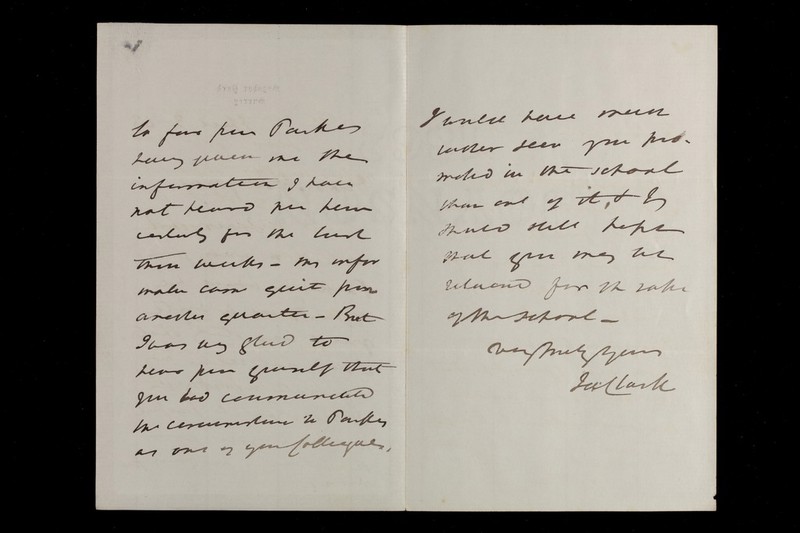 So far from Parkes
having given me the
information I have
not heard from him
certainly for the last
three weeks – my infor
mation came quite from
another quarter – But
I was very glad to
hear from yourself that
you had communicated
the circumstance to Parkes
as one of your Colleagues.
I would have much
rather seen you pro-
moted in the school
than out of it, & I
should still hope
that you may be
retained for the sake
of the School –
Very truly yours
Jas Clark